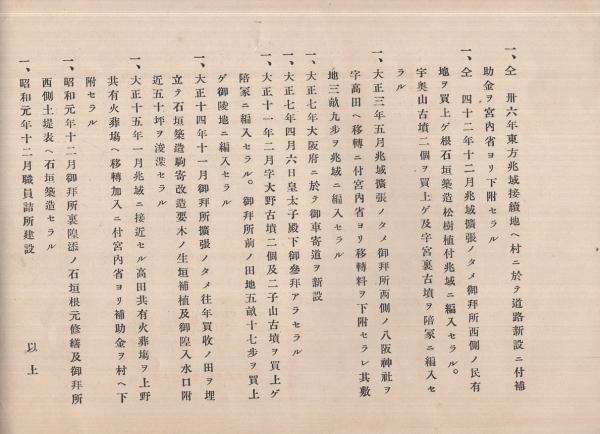 一、仝　卅六年東方兆域接續地ヘ村ニ於テ道路新設ニ付補
助金ヲ宮内省ヨリ下附セラル
一、仝　四十二年十二月兆域擴張ノタメ御拜所西側ノ民有
地ヲ買上ゲ根石垣築造松樹植付兆域ニ編入セラル。
宇奥山古墳二個ヲ買上ゲ及字宮裏古墳ヲ陪冢ニ編入セ
ラル
一、大正三年五月兆域擴張ノタメ御拜所西側ノ八阪神社ヲ
字高田ヘ移轉ニ付宮内省ヨリ移轉料ヲ下附セラレ其敷
地三畝九步ヲ兆域ニ編入セラル
一、大正七年大阪府ニ於テ御車寄道ヲ新設
一、大正七年四月六日皇太子殿下御參拜アラセラル
一、大正十一年二月字大野古墳二個及二子山古墳ヲ買上ゲ
陪冢ニ編入セラル。御拜所前ノ田地五畝十七步ヲ買上
ゲ御陵地ニ編入セラル
一、大正十四年十一月御拜所擴張ノタメ往年買收ノ田ヲ埋
立テ石垣築造駒寄改造要木ノ生垣補植及御隍入水口附
近五十坪ヲ浚渫セラル
一、大正十五年一月兆域ニ接近セル高田共有火葬塲ヲ上野
共有火葬塲ヘ移轉加入ニ付宮内省ヨリ補助金ヲ村ヘ下
附セラル
一、昭和元年十二月御拜所裏隍添ノ石垣根元修繕及御拜所
西側土堤表ヘ石垣築造セラル
一、昭和元年十二月職員詰所建設
以上